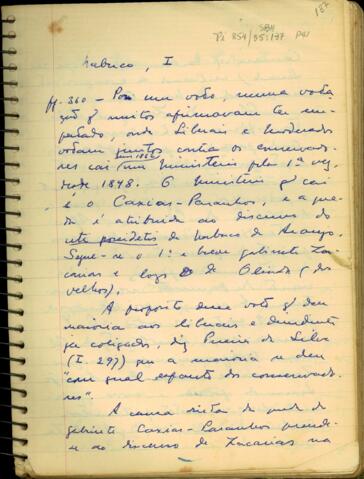 157
SBH
Pi 854/85:197 P41
Nabuco, I
ff. 360 - Por um voto, numa vota
ção q muitos afirmavam ter em
patado, onde Liberais e Moderados
votam juntos contra os conservado
em 1862
res cai um Ministerio pela 1ª vez
desde 1848. O Ministerio q cai
é o Caxias-Paranhos, e a que
da é atribuida ao discurso do
uti possidetis de Nabuco de Araujo.
Segue-se o 1º e breve gabinete Za
carias e logo o de Olinda (dos
velhos).
A proposito desse voto q deu
maioria aos liberais e dissidentes
já coligados, diz Pereira da Silva
(I. 297) que a maioria se deu
"com geral espanto dos conservado
res"
A causa direta da queda do
gabinete Caxias-Paranhos prende-
se ao discurso de Zacarias na